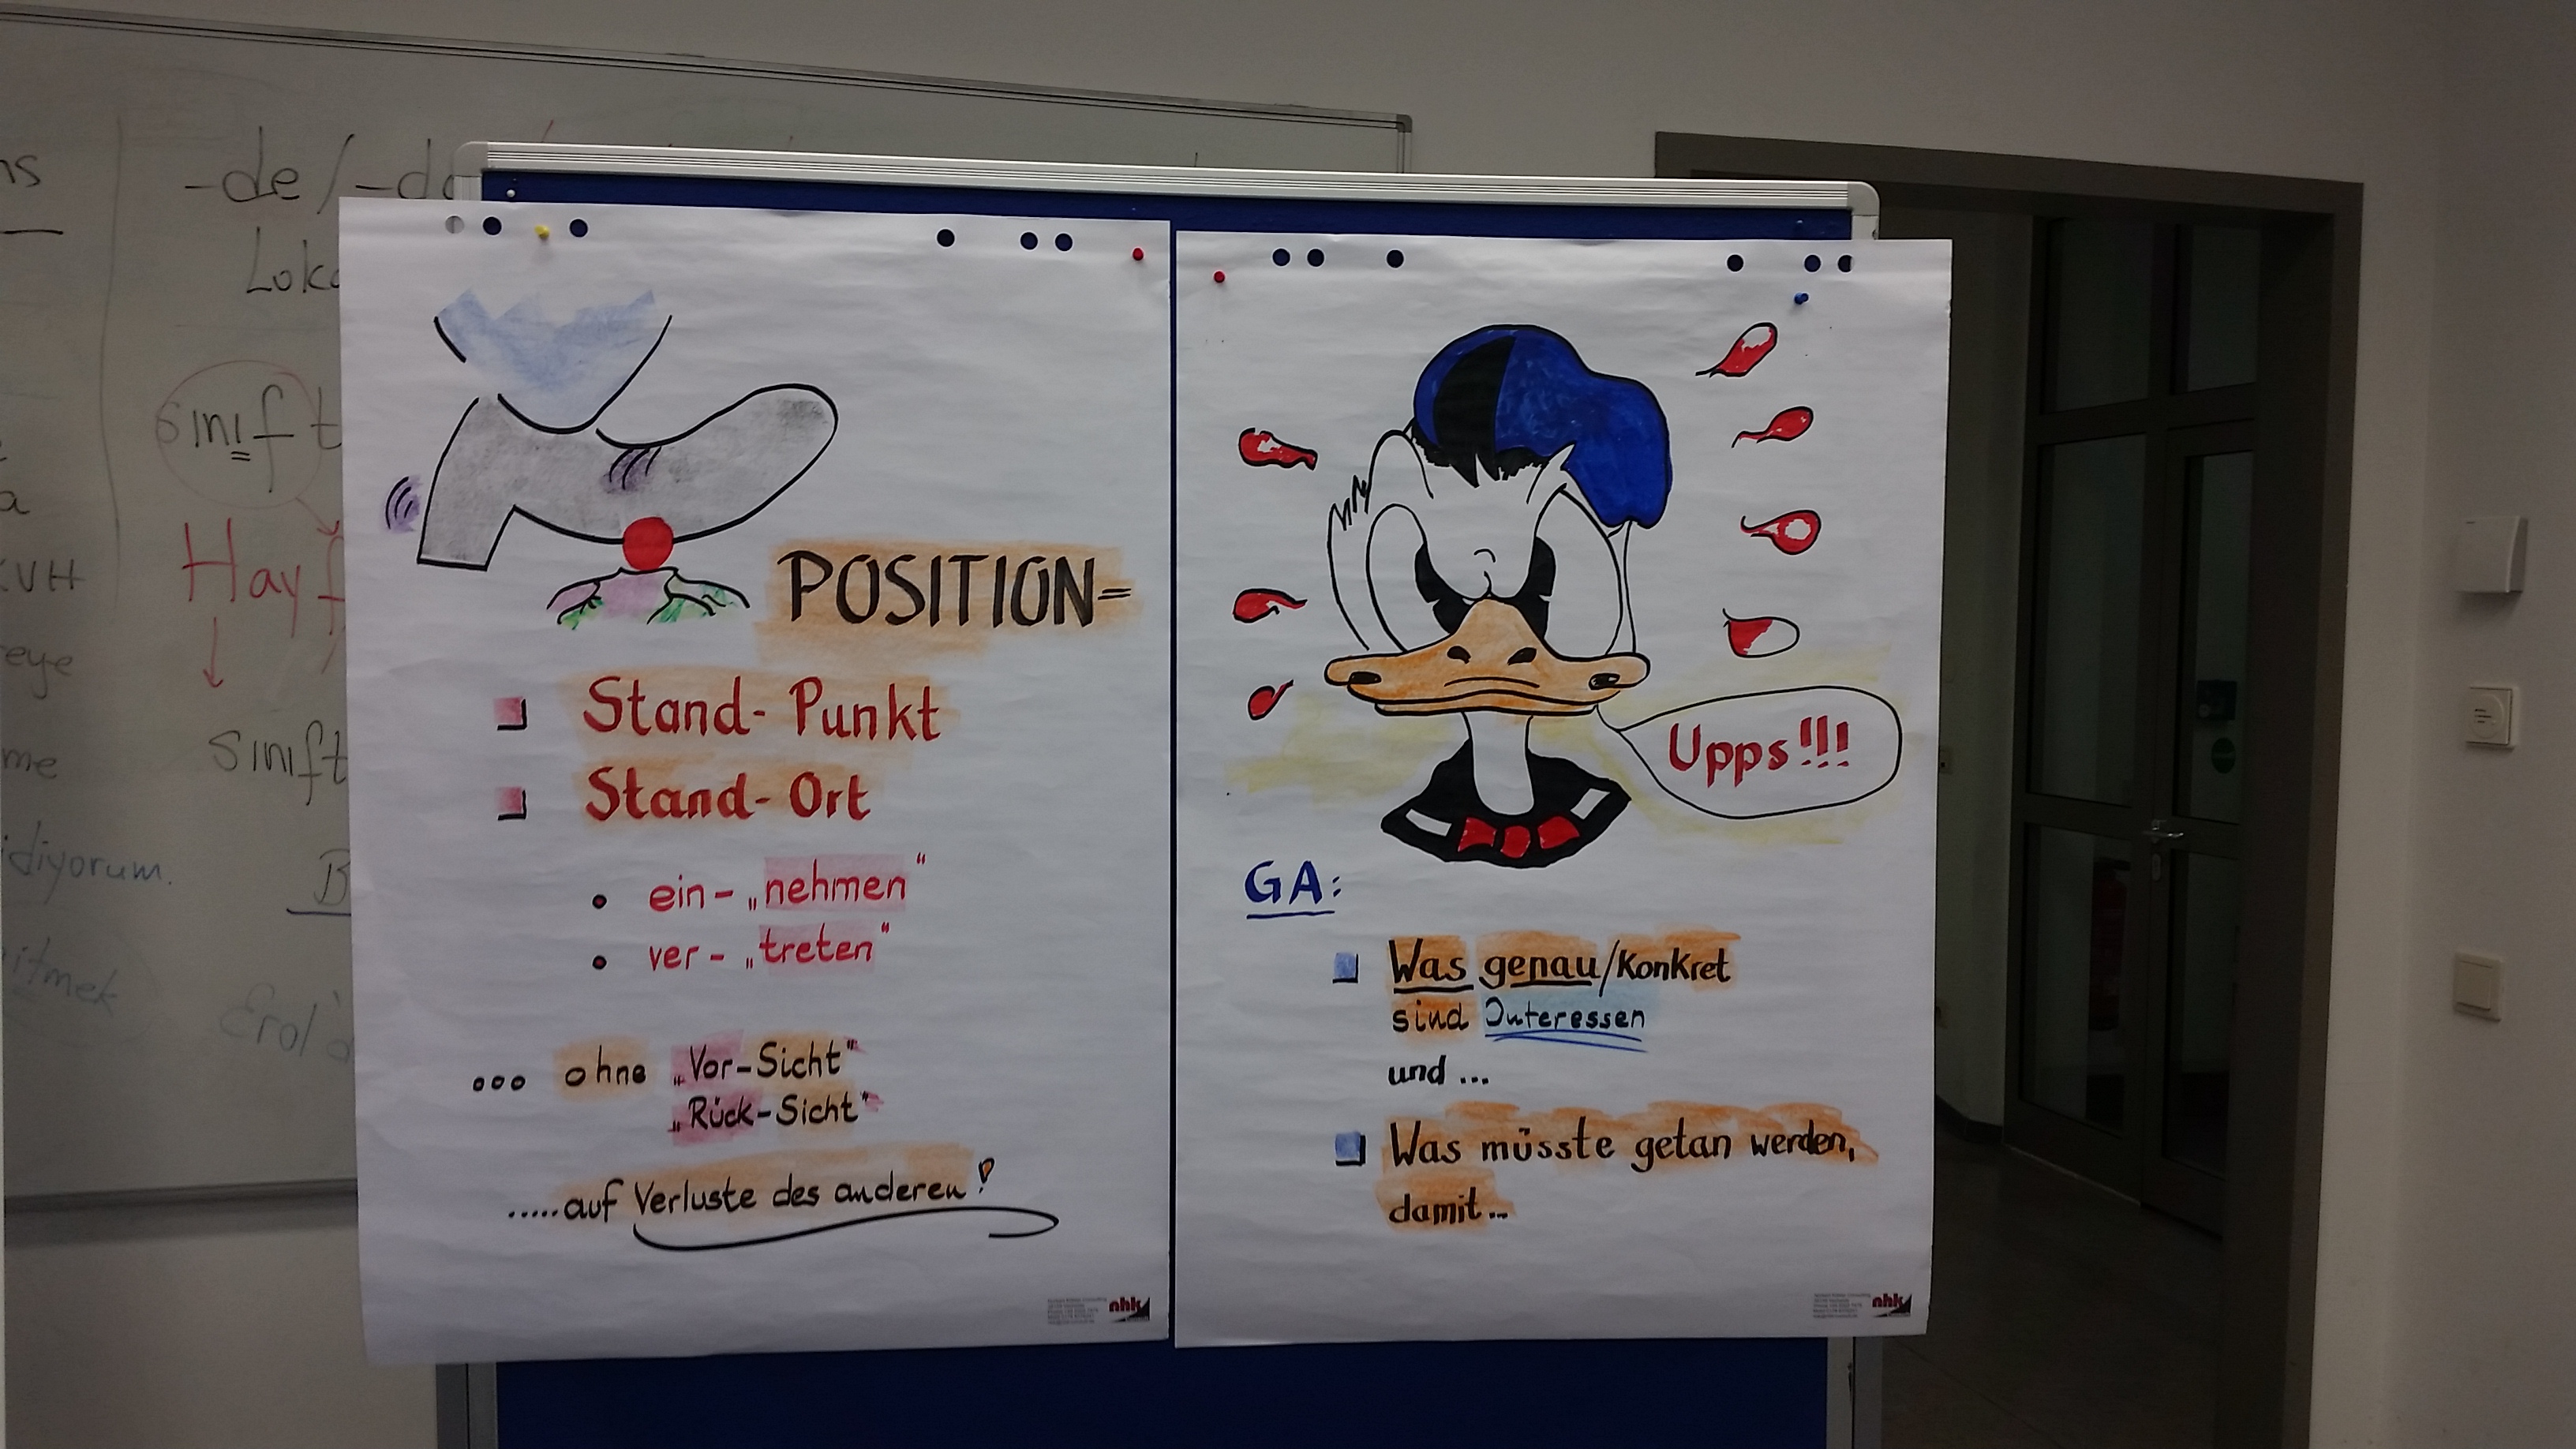 -de/-d
Lok
sınıf t
Hayf
KVH
eye
sınıft
me
diyorum.
B
itmek
Erol'
POSITION=
Stand-Punkt
Stand-Ort
• ein-„nehmen"
• ver-„treten"
... ohne „Vor-Sicht"
„Rück-Sicht"
.....auf Verluste des anderen!
nhk
Upps!!!
GA:
Was genau/Konkret
sind Interessen
und ...
Was müsste getan werden,
damit...
nhk